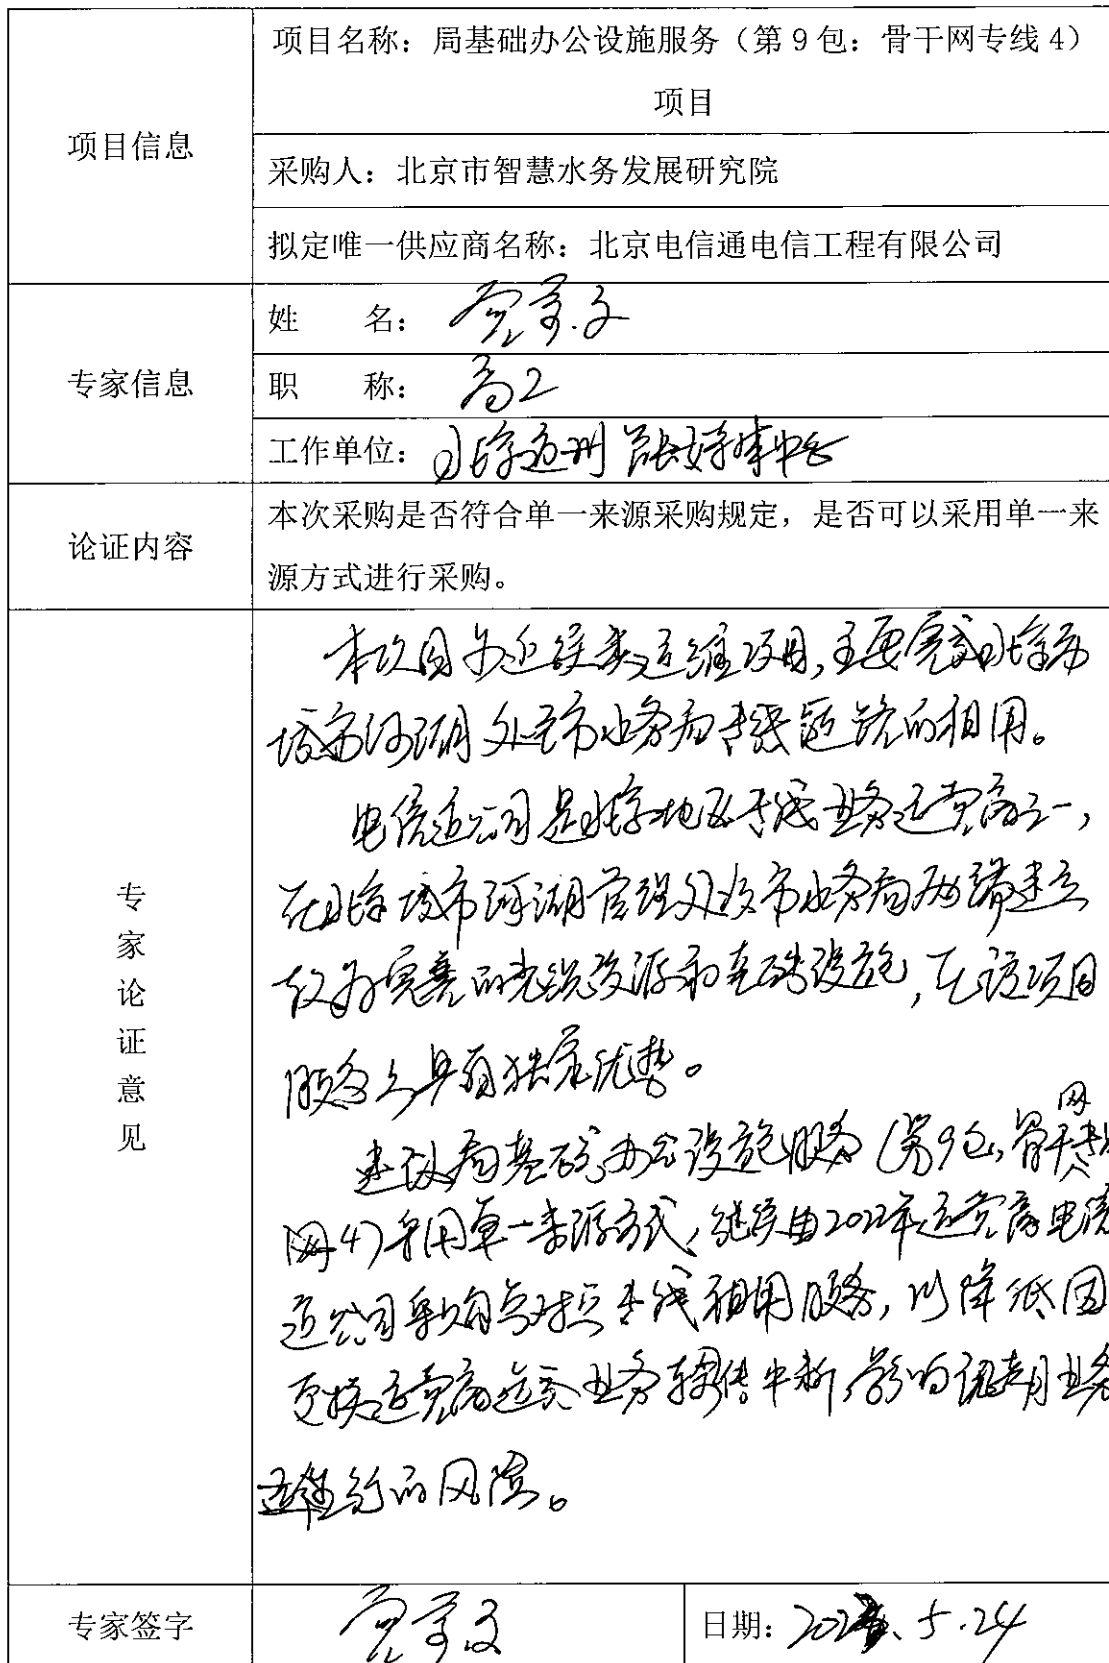 项目信息
项目名称：局基础办公设施服务（第9包：骨干网专线4）
项目
采购人：北京市智慧水务发展研究院
拟定唯一供应商名称：北京电信通电信工程有限公司
专家信息
姓 名：
职 称：高工
工作单位：北京通州
论证内容
本次采购是否符合单一来源采购规定，是否可以采用单一来
源方式进行采购。
专家论证意见
本项目为延续类运维项目，主要完成北京市
城市河湖处至市水务局专线链路的租用。
电信通公司是北京地区专线业务运营商之一，
在北京城市河湖管理处及市水务局两端建立
较为完善的光缆资源和基础设施，在该项目
服务上具有独家优势。
建议局基础办公设施服务（第9包，骨干网专线
4）采用单一来源方式，继续由2022年运营商电信
通公司承担点对点专线租用服务，以降低因
更换运营商造成业务转传中断影响
的风险。
专家签字
日期：5.24